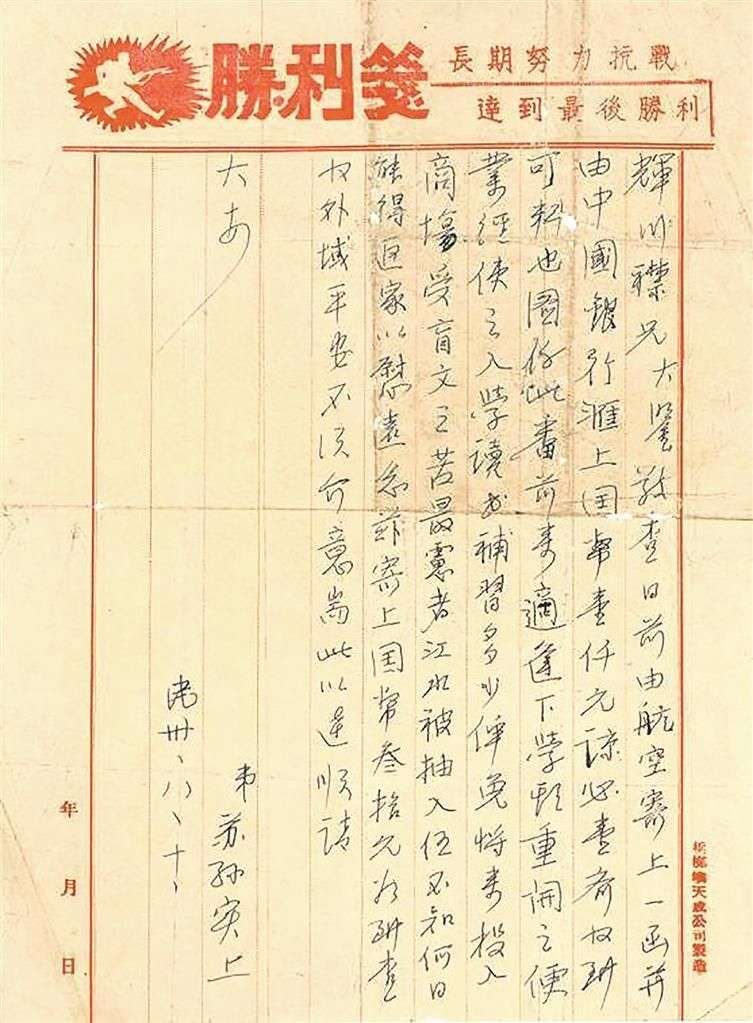 勝利箋
長期努力抗戰
達到最後勝利
輝川襟兄大鑒敬查日前由航空寄上一函并
由中國銀行滙上国幣壹仟元諒必壹齊收到
可知也國係此番前來適逢下學期重開之便
業經使之入學讀書補習多少俾免將來投入
商場受盲文之苦最慮者江水被抽入伍不知何日
能得回家以慰遠念茲寄上国幣叁拾元為到查
收外域平安不須介意耑此以達順請
大安
弟苏孙上
民卅、八、十、
年月日
檳榔嶼天成公司製造